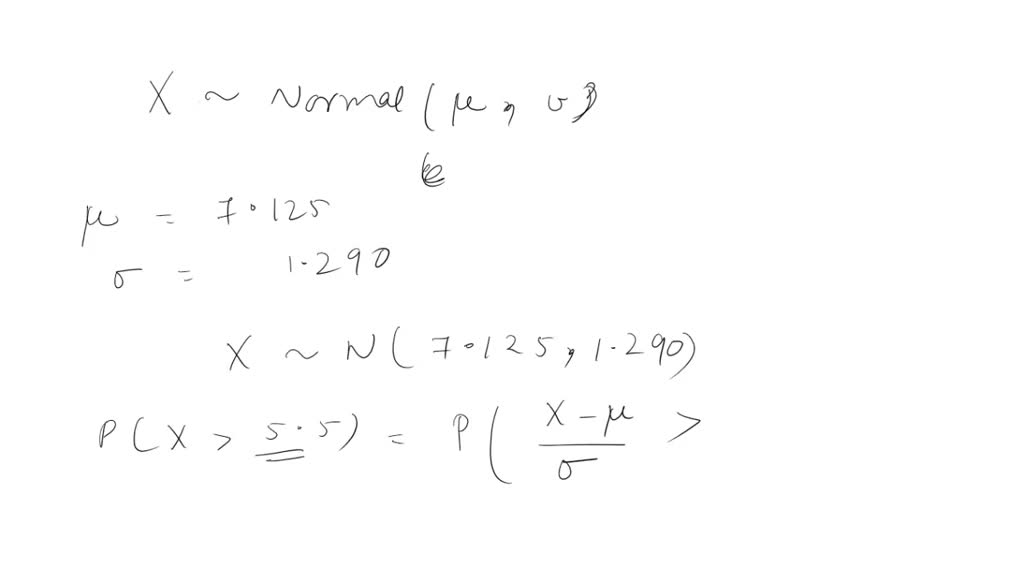 X ~ Normal (μ, σ)
μ = 7.125
σ = 1.290
X ~ N( 7.125, 1.290)
P(X > 5.5) = P( X - μ / σ >